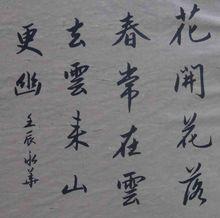 花開花落
春常在雲
去雲来山
更幽
壬辰永華